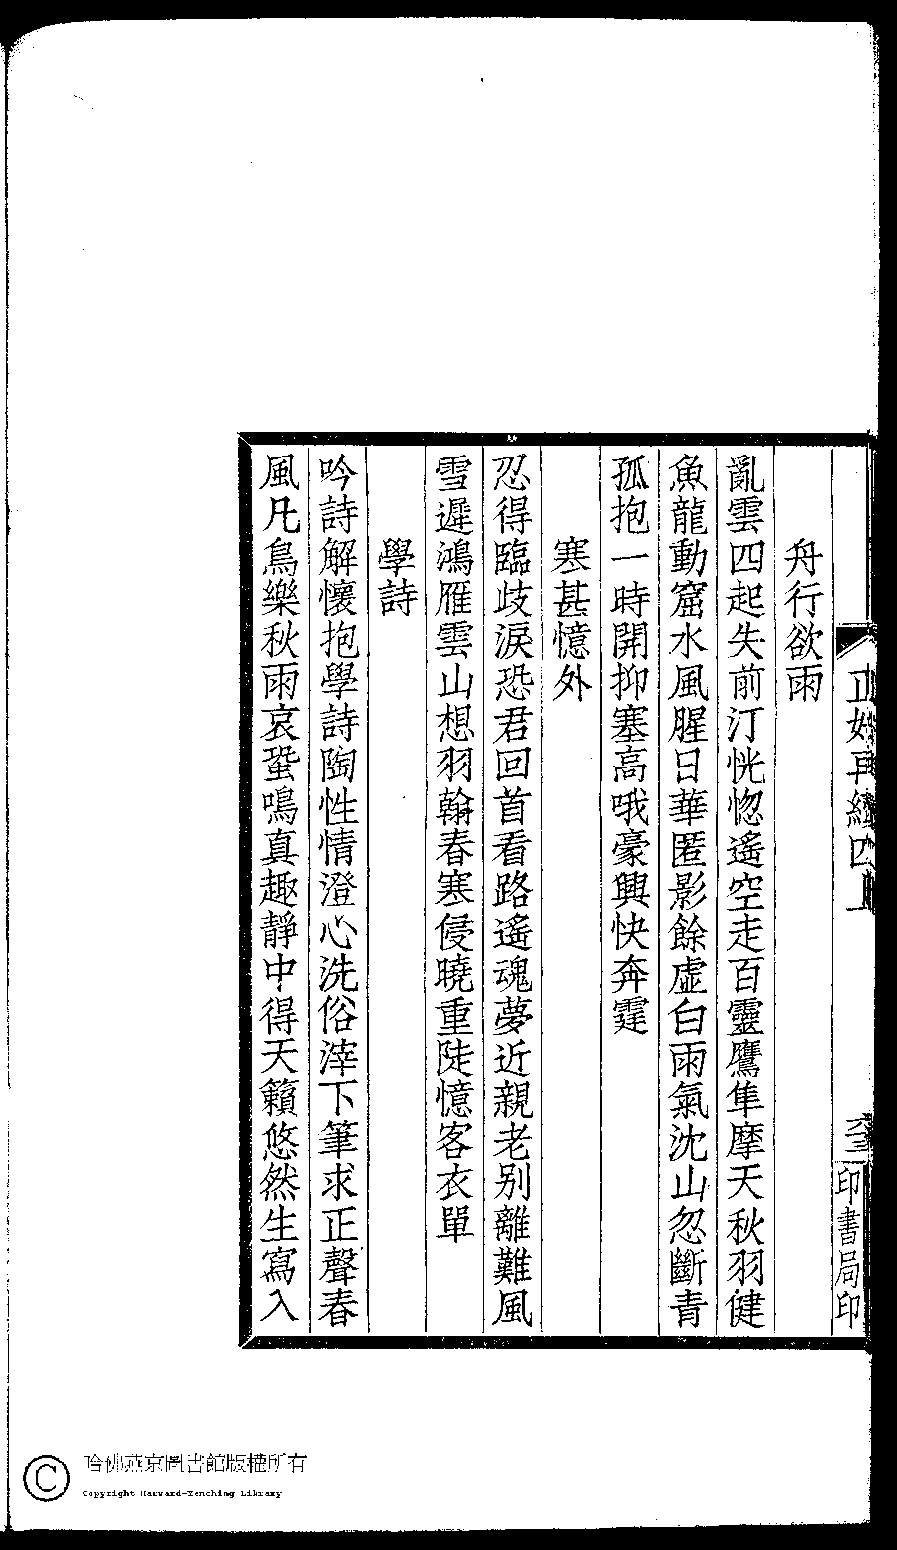 舟行欲雨
亂雲四起失前汀恍惚遙空走百靈鷹隼摩天秋羽健
魚龍動窟水風腥日華匿影餘虛白雨氣沈山忽斷青
孤抱一時開抑塞高哦豪興快奔霆
寒甚憶外
忍得臨歧淚恐君回首看路遙魂夢近親老别離難風
雪遲鴻雁雲山想羽翰春寒侵曉重陡憶客衣單
學詩
吟詩解懷抱學詩陶性情澄心洗俗滓下筆求正聲春
風凡鳥樂秋雨哀蛩鳴真趣靜中得天籟悠然生寫入
正始再續四上
六十二
印書局印
哈佛燕京圖書館版權所有
Copyright Harvard-Yenching Library